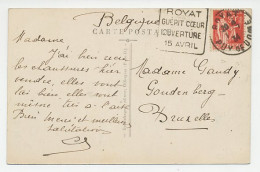 Belgique
CARTE POSTALE
ROYAT
GUÉRIT CŒUR
OUVERTURE
15 AVRIL
PUY DE DOME
Madame
J'ai bien reçu
les chaussures hier
vendre, elles vont
très bien elles sont
même très à l'aise
Bien merci et meilleures
salutations
Madame Gaudy
Coudenberg
Bruxelles